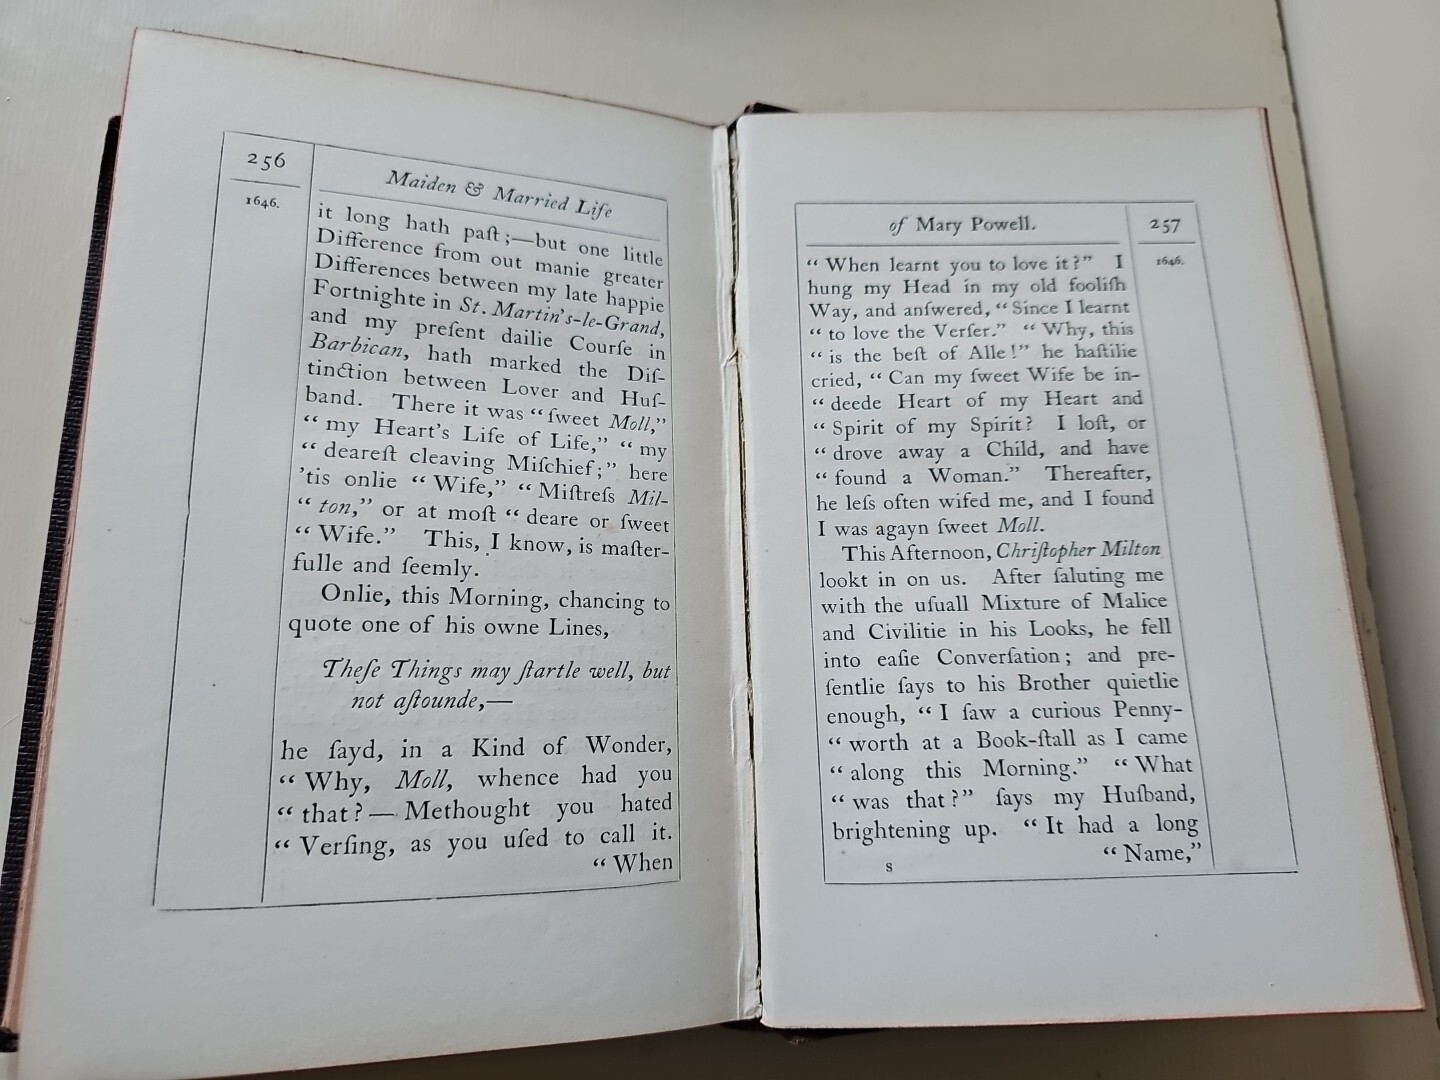 256
Maiden & Married Life
1646.
it long hath paſt;—but one little
Difference from out manie greater
Differences between my late happie
Fortnighte in St. Martin's-le-Grand,
and my preſent dailie Courſe in
Barbican, hath marked the Diſ-
tinction between Lover and Huſ-
band. There it was “ ſweet Moll,”
“ my Heart's Life of Life,” “ my
“ deareſt cleaving Miſchief;” here
'tis onlie “ Wife,” “ Miſtreſs Mil-
“ ton,” or at moſt “ deare or ſweet
“ Wife.” This, I know, is maſter-
fulle and ſeemly.
Onlie, this Morning, chancing to
quote one of his owne Lines,
Theſe Things may ſtartle well, but
not aſtounde,—
he ſayd, in a Kind of Wonder,
“ Why, Moll, whence had you
“ that?— Methought you hated
“ Verſing, as you uſed to call it.
“ When
of Mary Powell.
257
1646.
“ When learnt you to love it?” I
hung my Head in my old fooliſh
Way, and anſwered, “ Since I learnt
“ to love the Verſer.” “ Why, this
“ is the beſt of Alle!” he haſtilie
cried, “ Can my ſweet Wife be in-
“ deede Heart of my Heart and
“ Spirit of my Spirit? I loſt, or
“ drove away a Child, and have
“ found a Woman.” Thereafter,
he leſs often wifed me, and I found
I was agayn ſweet Moll.
This Afternoon, Chriſtopher Milton
lookt in on us. After ſaluting me
with the uſuall Mixture of Malice
and Civilitie in his Looks, he fell
into eaſie Converſation; and pre-
ſentlie ſays to his Brother quietlie
enough, “ I ſaw a curious Penny-
“ worth at a Book-ſtall as I came
“ along this Morning.” “ What
“ was that?” ſays my Huſband,
brightening up. “ It had a long
s
“ Name,”